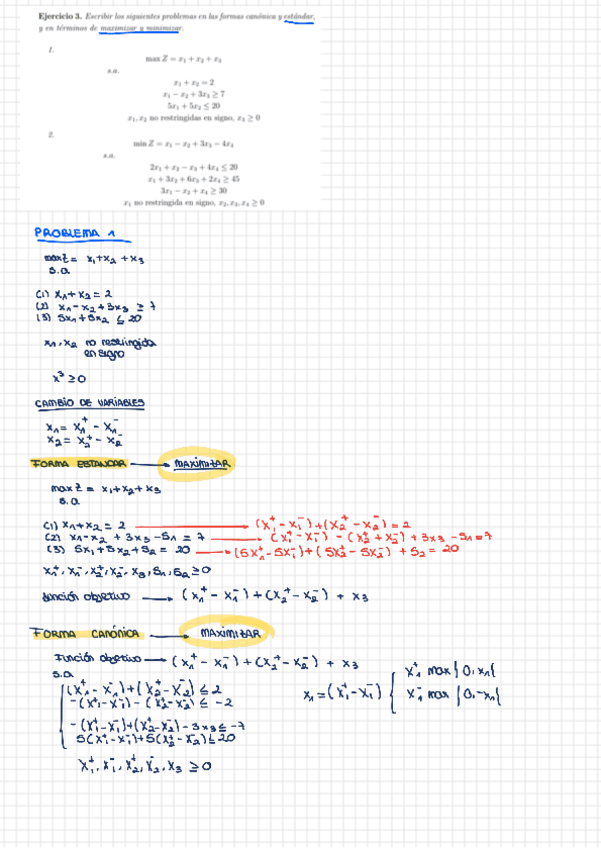 Ejercicio 3. Escribir los siguientes problemas en las formas canónica y estándar,
y en términos de maximizar y minimizar.
1.
max Z = x₁ + x₂ + x₃
s.a.
x₁ + x₂ = 2
x₁ − x₂ + 3x₃ ≥ 7
5x₁ + 5x₂ ≤ 20
x₁, x₂ no restringidas en signo, x₃ ≥ 0
2.
min Z = x₁ − x₂ + 3x₃ − 4x₄
s.a.
2x₁ + x₂ − x₃ + 4x₄ ≤ 20
x₁ + 3x₂ + 6x₃ + 2x₄ ≥ 45
3x₁ − x₂ + x₄ ≥ 30
x₁ no restringida en signo, x₂, x₃, x₄ ≥ 0
PROBLEMA 1
max Z = x₁+x₂ +x₃
s.a
(1) x₁+x₂ = 2
(2) x₁-x₂+3x₃ ≥ 7
(3) 5x₁+5x₂ ≤ 20
x₁, x₂ no restringida
en signo
x³ ≥ 0
CAMBIO DE VARIABLES
x₁ = x₁⁺ - x₁⁻
x₂ = x₂⁺ - x₂⁻
FORMA ESTANDAR → MAXIMIZAR
max Z = x₁+x₂+x₃
s.a
(1) x₁+x₂ = 2 → (x₁⁺-x₁⁻)+(x₂⁺-x₂⁻)=2
(2) x₁-x₂ + 3x₃ -S₁ = 7 → (x₁⁺-x₁⁻) - (x₂⁺+x₂⁻) + 3x₃ -S₁=7
(3) 5x₁+5x₂+S₂ = 20 → (5x₁⁺-5x₁⁻)+(5x₂⁺-5x₂⁻) + S₂ = 20
x₁⁺, x₁⁻, x₂⁺, x₂⁻, x₃, S₁, S₂ ≥ 0
función objetivo → (x₁⁺ - x₁⁻) + (x₂⁺ - x₂⁻) + x₃
FORMA CANÓNICA → MAXIMIZAR
Función objetivo → (x₁⁺ - x₁⁻) + (x₂⁺ - x₂⁻) + x₃
s.a
(x₁⁺ - x₁⁻)+(x₂⁺-x₂⁻) ≤ 2
-(x₁⁺-x₁⁻) - (x₂⁺-x₂⁻) ≤ -2
-(x₁⁺-x₁⁻)+(x₂⁺-x₂⁻) - 3x₃ ≤ -7
5(x₁⁺-x₁⁻)+5(x₂⁺-x₂⁻) ≤ 20
x₁⁺, x₁⁻, x₂⁺, x₂⁻, x₃ ≥ 0
x₁ = (x₁⁺-x₁⁻) { x₁⁺ max { 0, x₁ {
x₁⁻ max { 0, -x₁ {